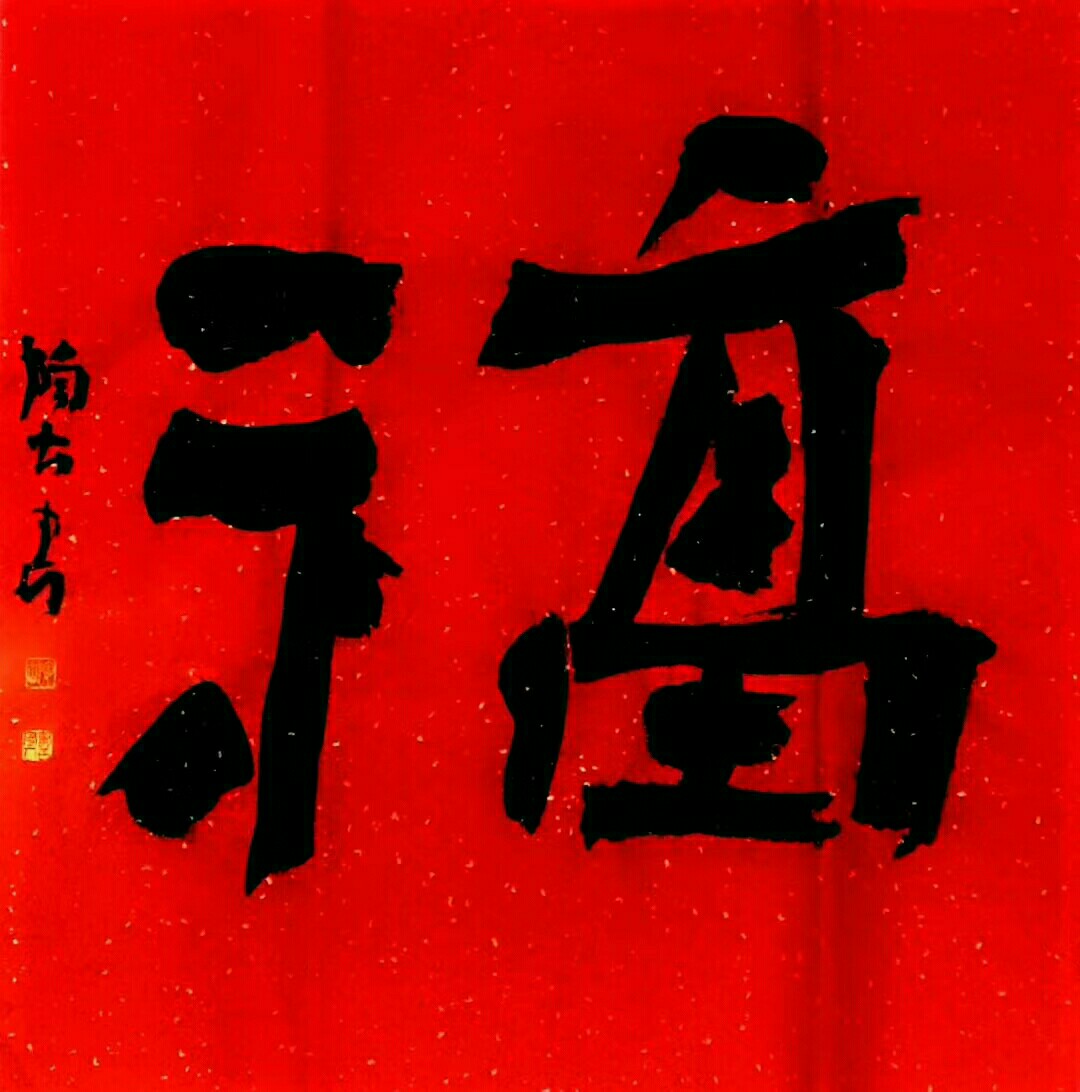 福
陶古书